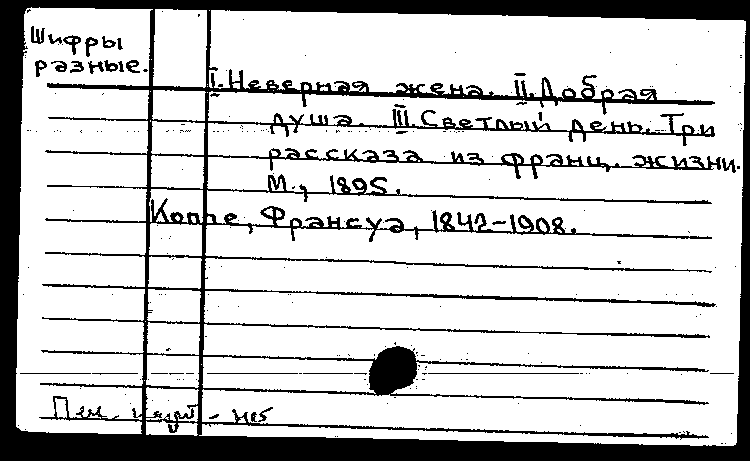 Шифры
разные.
I. Неверная жена. II. Добрая
душа. III. Светлый день. Три
рассказа из франц. жизни.
М., 1895.
Коппе, Франсуа, 1842-1908.
Печ.